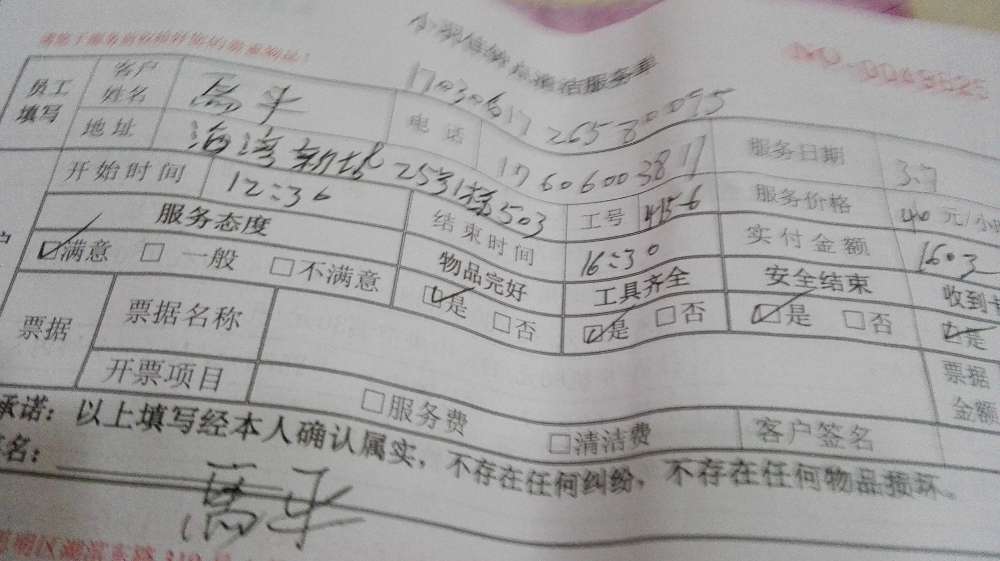 保洁服务单
NO.
员工填写 客户姓名 高平 电话 17606003811 服务日期 3.7
17030617265780095
地址 海湾新城25号楼503 工号 4156 服务价格 40元/小时
开始时间 12:30 结束时间 16:30 实付金额 160元
服务态度 物品完好 工具齐全 安全结束 收到
☑满意 □一般 □不满意 ☑是 □否 ☑是 □否 ☑是 □否 ☑是
票据 票据名称 票据金额
开票项目 □服务费 □清洁费 客户签名
承诺：以上填写经本人确认属实，不存在任何纠纷，不存在任何物品损坏。
名： 高平